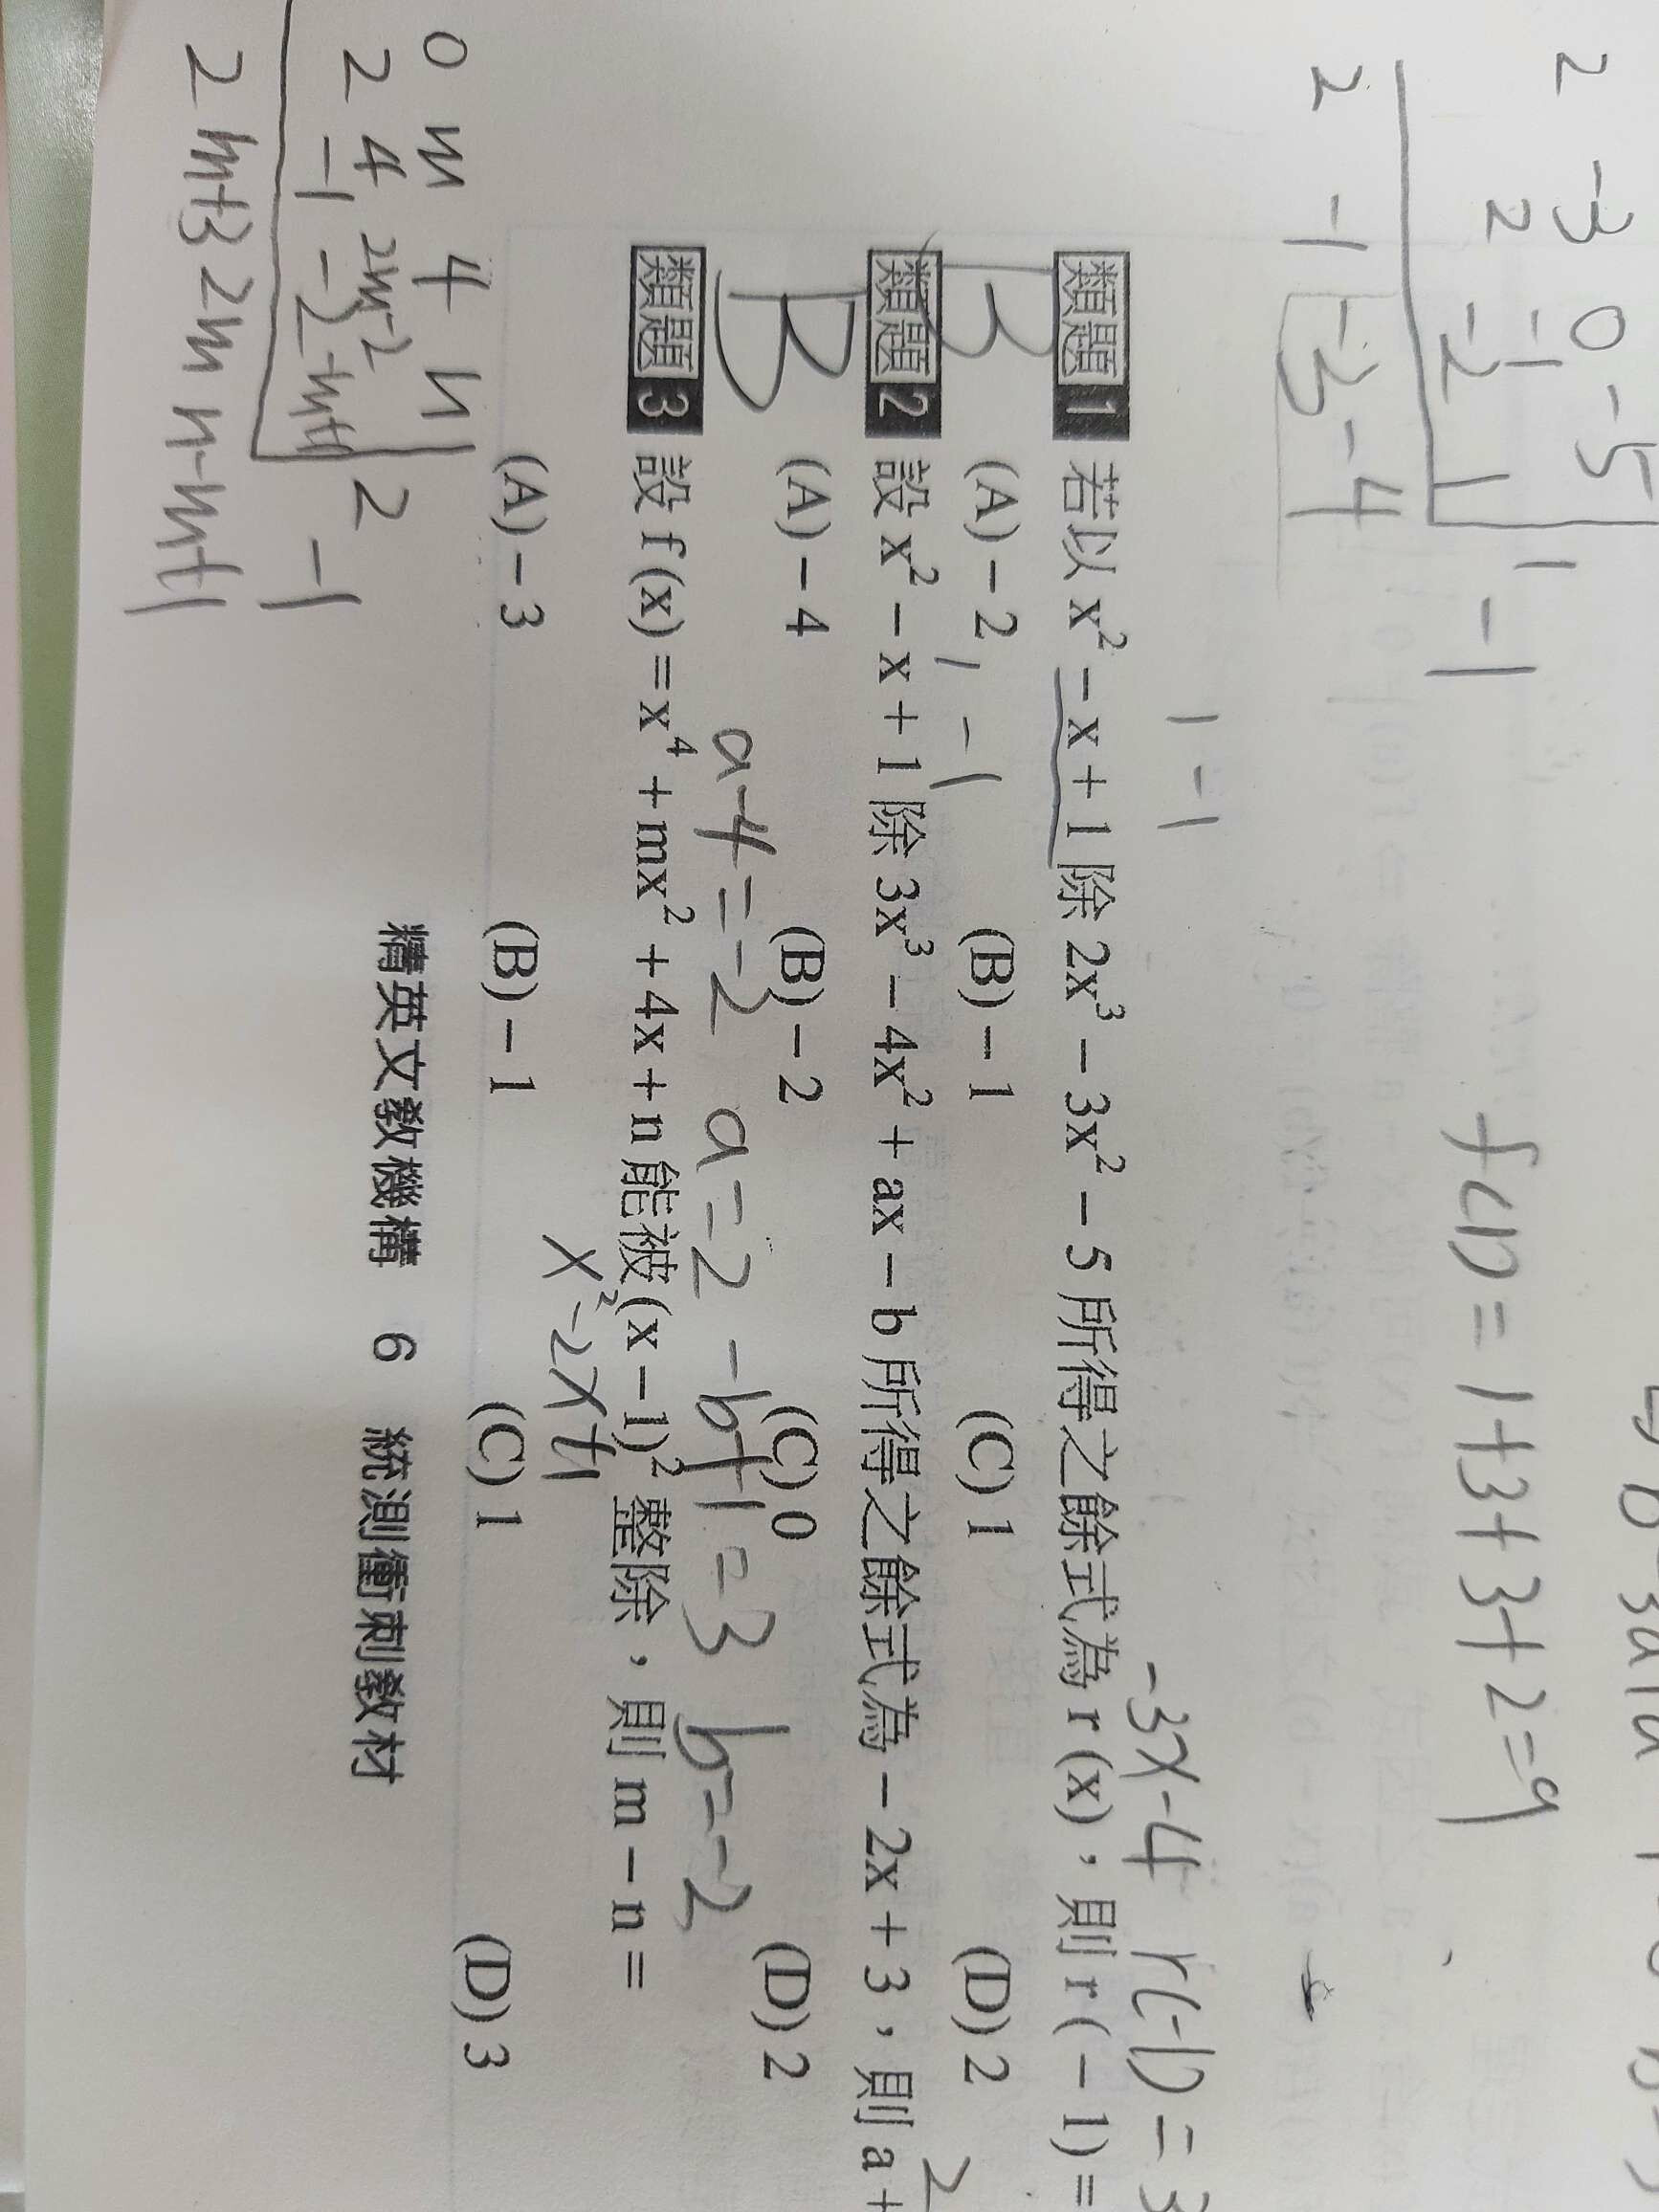 2 -3 0 -5 | 1 -1
2 -1
-2 1
2 -1 -3 -4
f(1) = 1+3+3+2=9
1 -1
-3x-4 r(-1) = 3
類題1 若以 x² − x + 1 除 2x³ − 3x² − 5 所得之餘式為 r (x)，則 r ( − 1) =
B (A) − 2 (B) − 1 (C) 1 (D) 2
1 -1
類題2 設 x² − x + 1 除 3x³ − 4x² + ax − b 所得之餘式為 − 2x + 3，則 a +
B (A) − 4 (B) − 2 (C) 0 (D) 2
a-4=-2 a=2 -b+1=3 b=-2
類題3 設 f (x) = x⁴ + mx² + 4x + n 能被 (x − 1)² 整除，則 m − n =
x²-2x+1
(A) − 3 (B) − 1 (C) 1 (D) 3
0 m 4 n | 2 -1
2 4 2m-2
-1 -2 -m+1
2 m+3 2m n-m+1
精英文教機構 6 統測衝刺教材